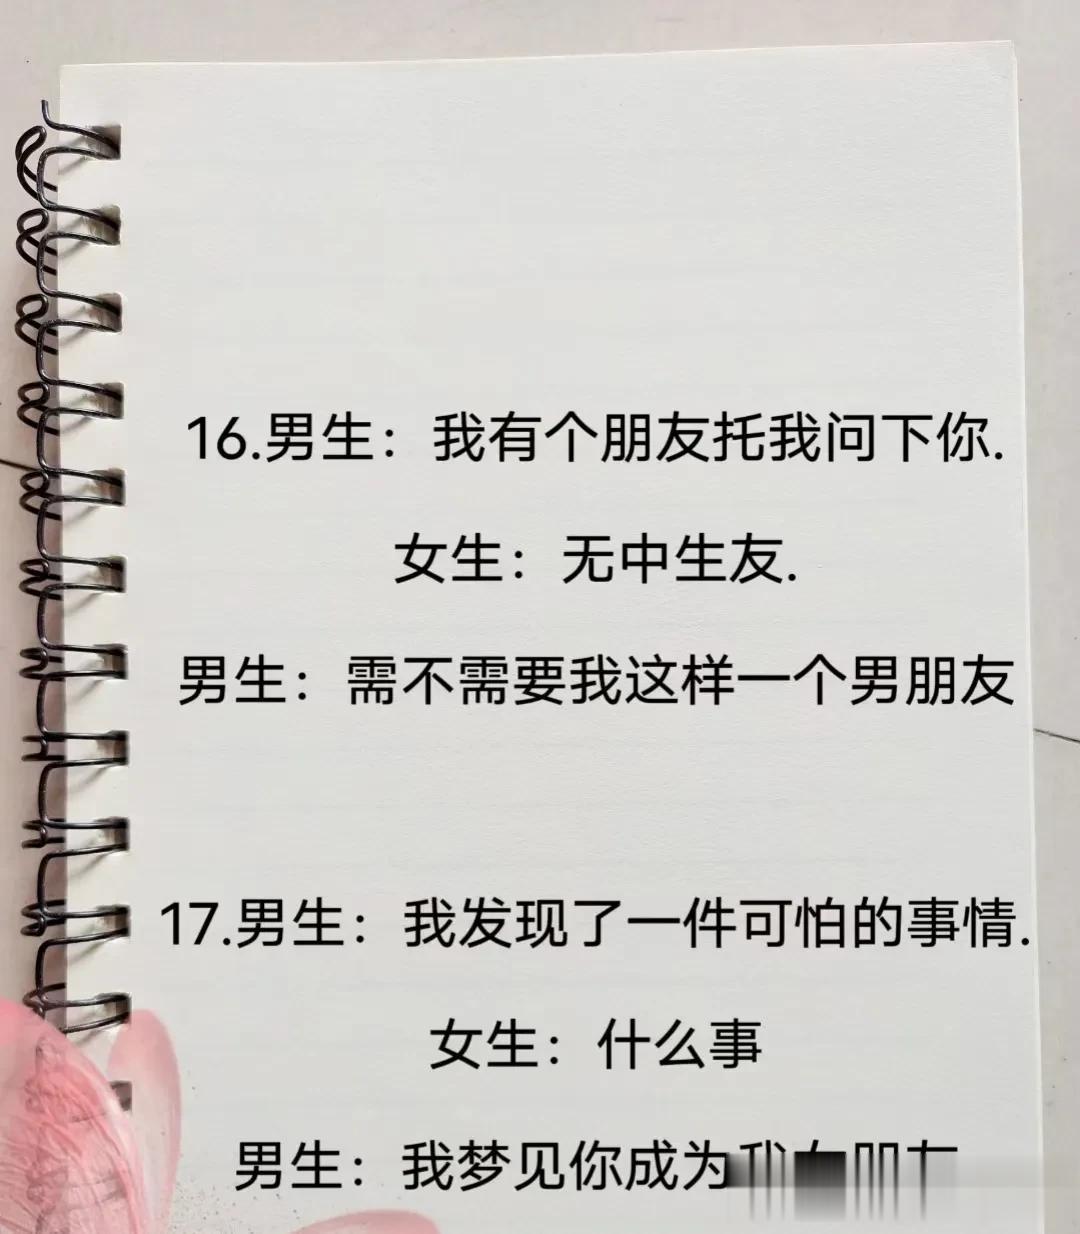 16.男生：我有个朋友托我问下你.
女生：无中生友.
男生：需不需要我这样一个男朋友
17.男生：我发现了一件可怕的事情.
女生：什么事
男生：我梦见你成为